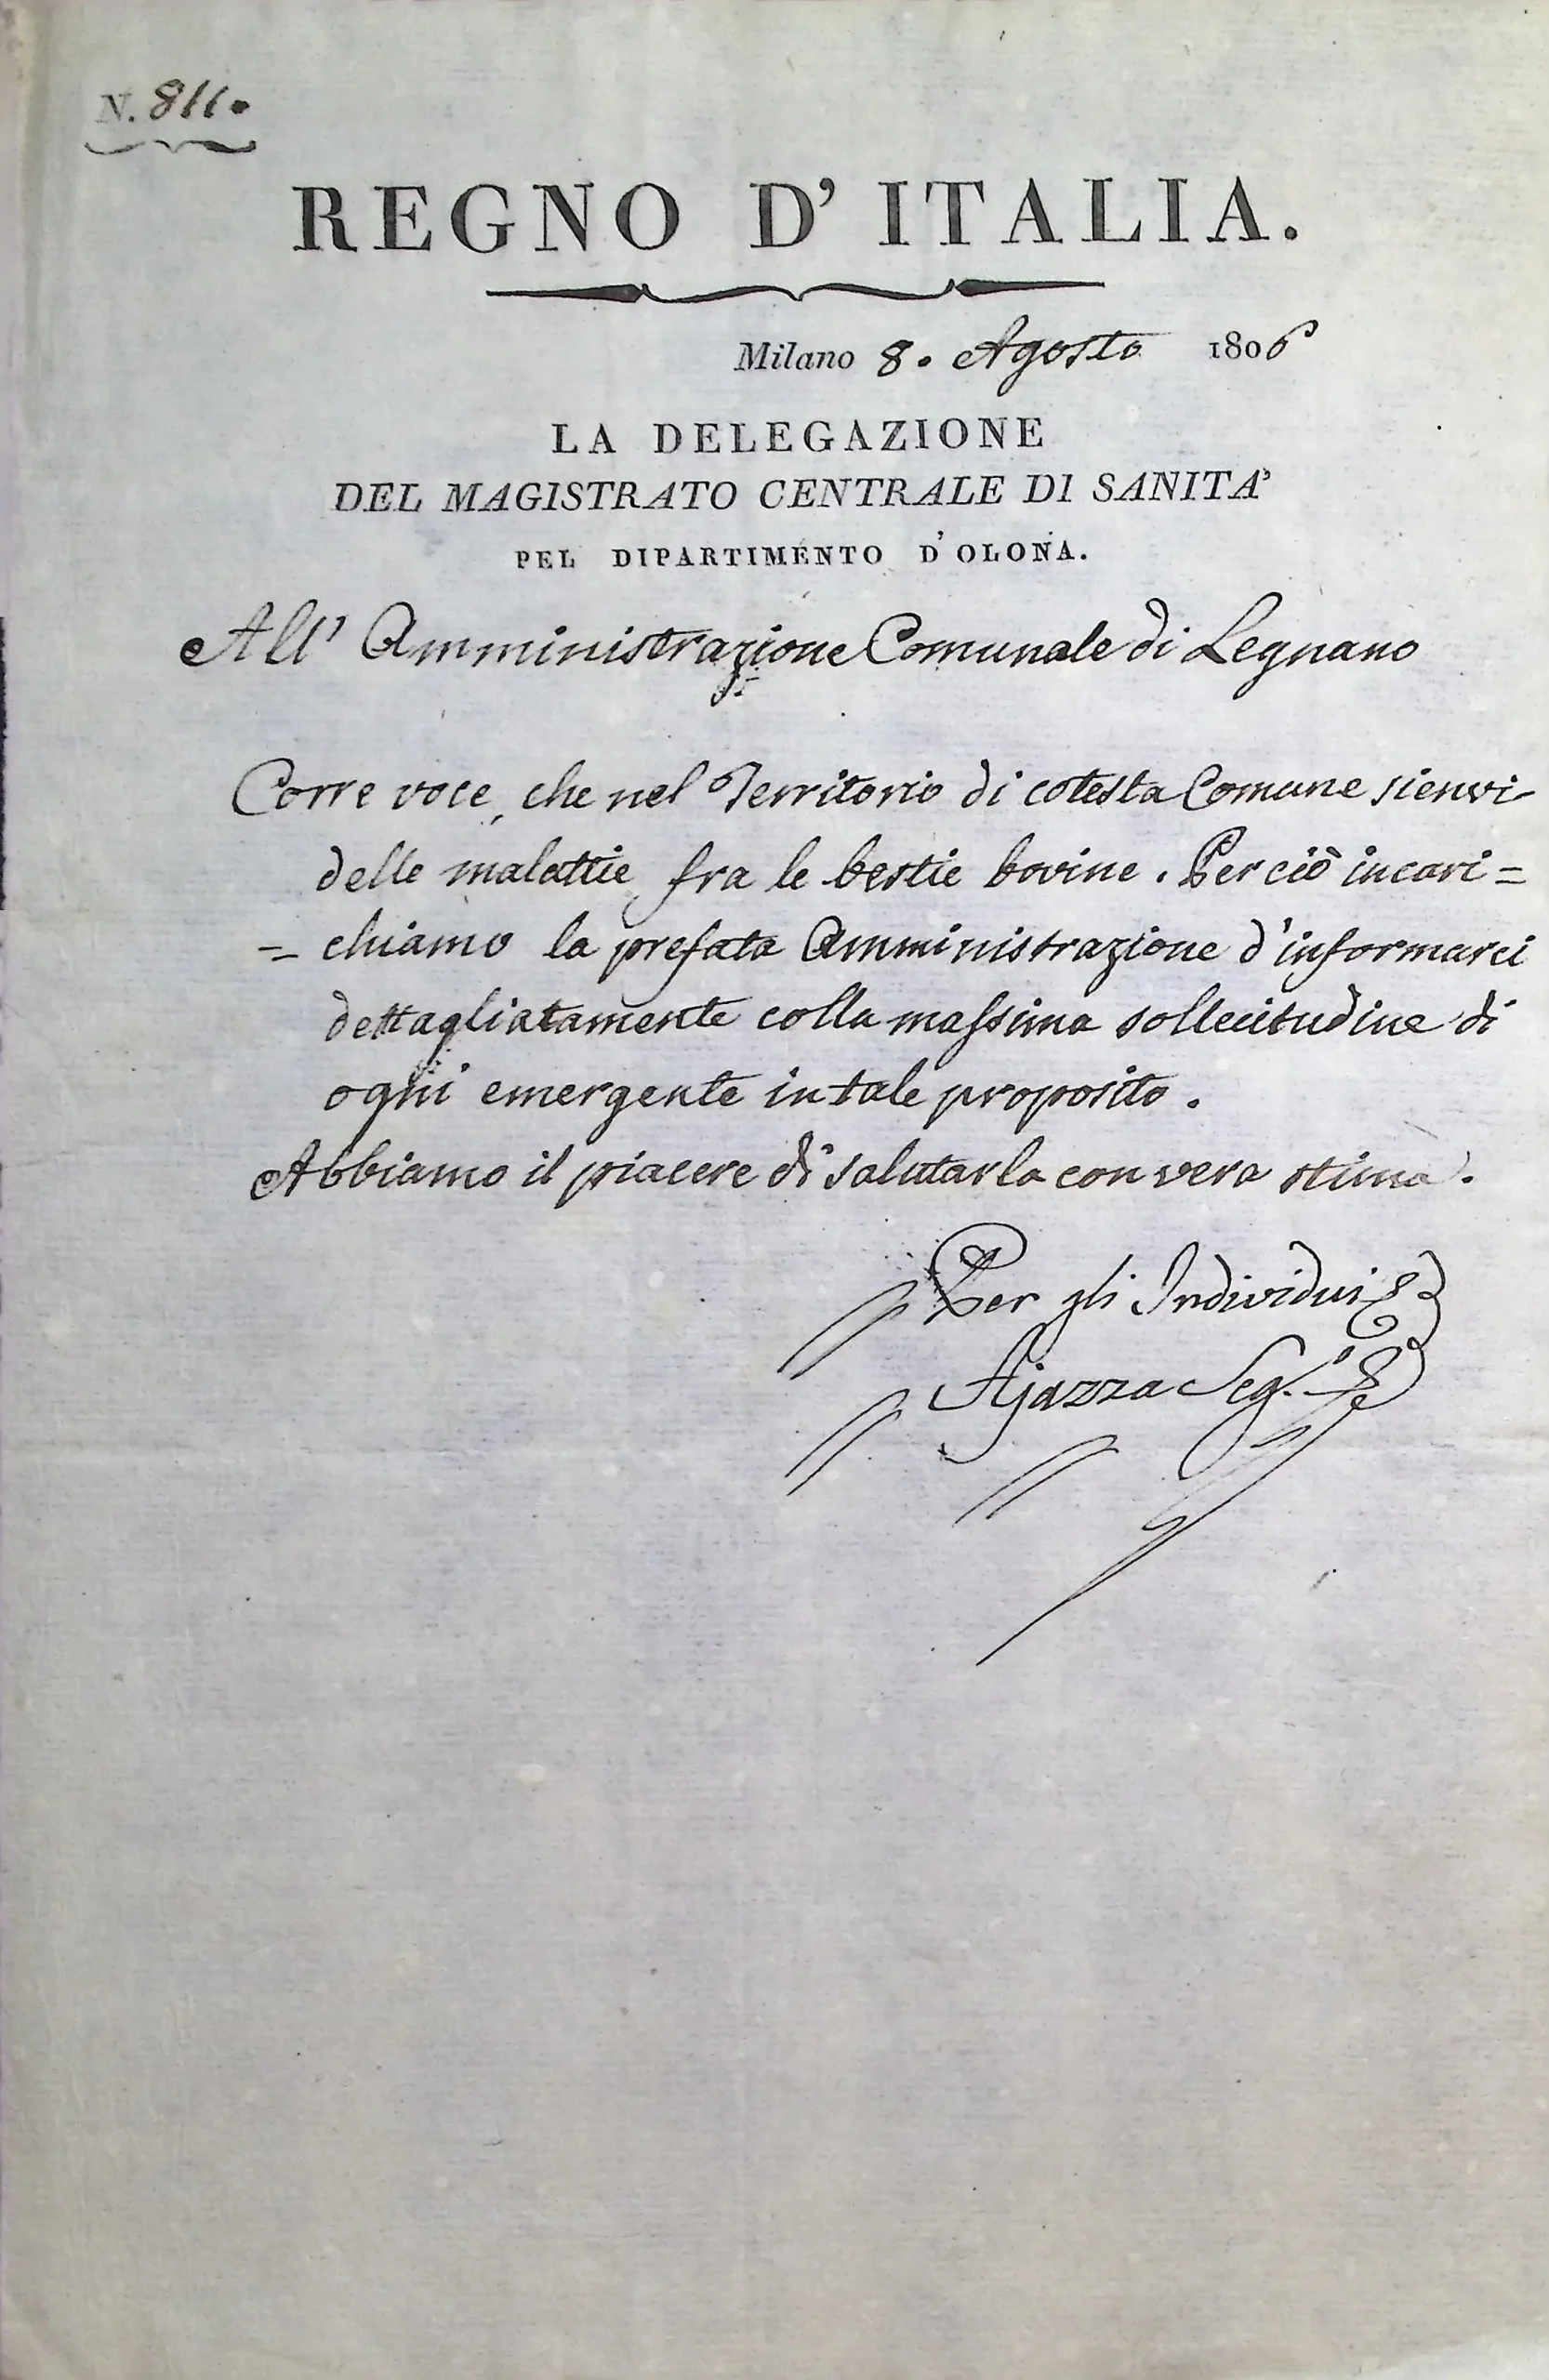 N. 811.
REGNO D' ITALIA.
Milano 8. Agosto 1806
LA DELEGAZIONE
DEL MAGISTRATO CENTRALE DI SANITA'
PEL DIPARTIMENTO D'OLONA.
All' Amministrazione Comunale di Legnano
Corre voce, che nel Territorio di cotesta Comune sienvi
delle malattie fra le bestie bovine. Perciò incari=
= chiamo la prefata Amministrazione d'informarci
dettagliatamente colla massima sollecitudine di
ogni emergente in tale proposito.
Abbiamo il piacere di salutarla con vera stima.
Per gli Individui
Ajazza Seg.º